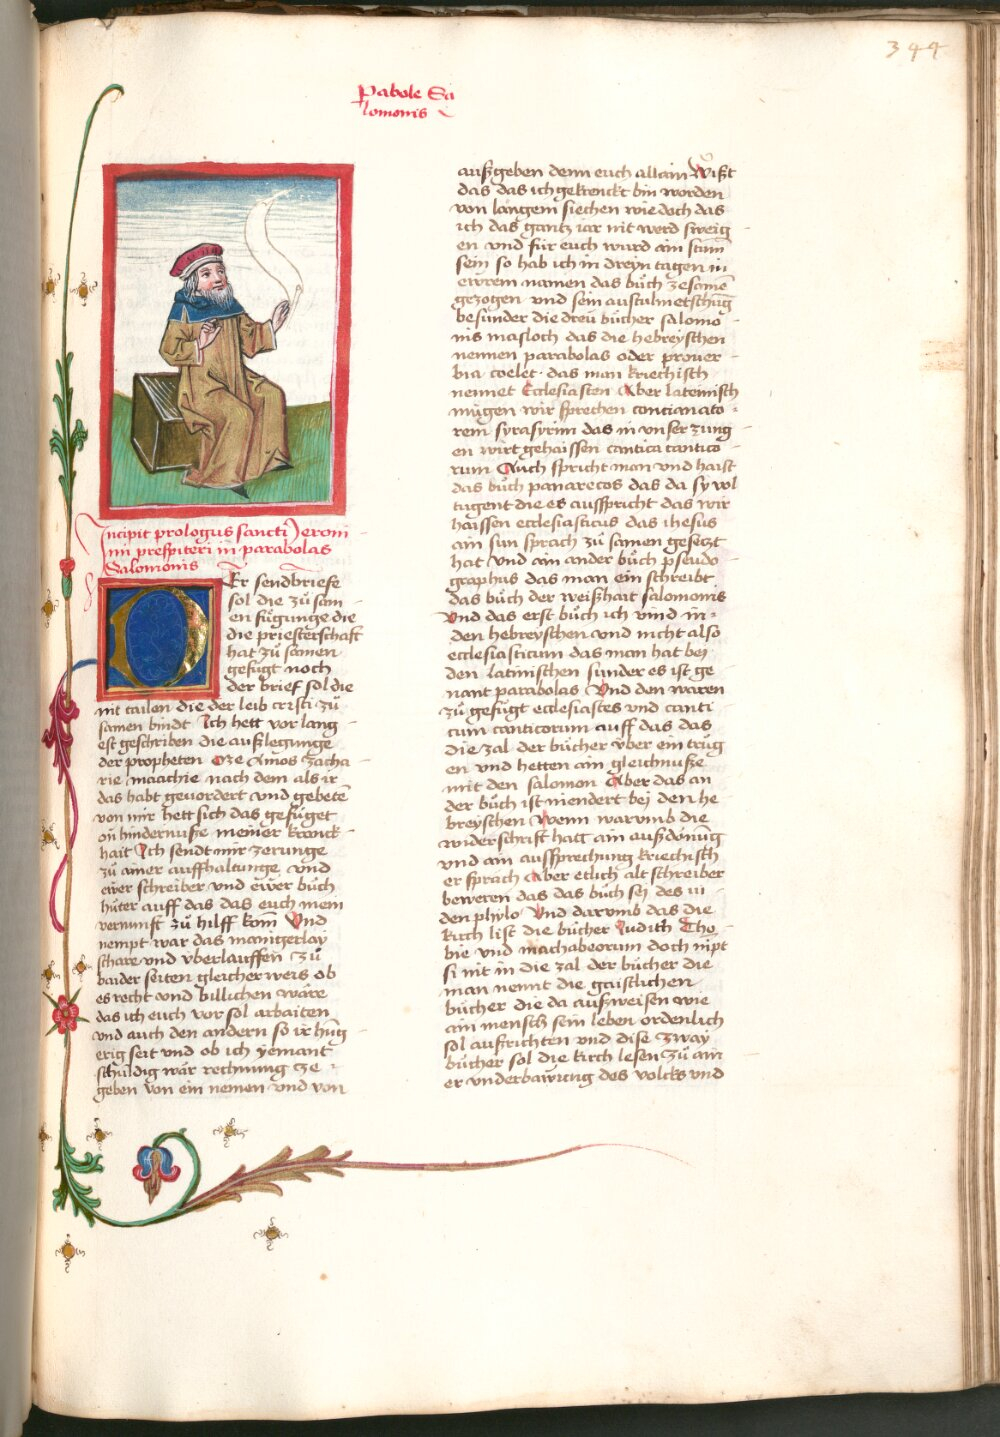 344
Pabole Sa
lomonis
Incipit prologus sancti Jeroni
mi prespiteri in parabolas
Salomonis
Er sendbriefe
sol die zů sam
en fůgunge die
die priesterschaft
hat zů samen
gefůgt noch
der brief sol die
nit tailen die der leib cristi zů
samen bindt Ich hett vor lang
est geschriben die außlegunge
der propheten Oze Amos zacha
rie maachie nach dem als ir
das habt gevordert und gebeten̄
von mir hett sich das gefůget
on̄ hindernuße meiner kranck
hait Ich sendt mir zerunge
zů ainer auffhaltunge und
ewer schreiber und ewer bůch
hůter auff das das euch mein
vernunft zů hilff kom̄ Und
nempt war das manigerlay
schare und vberlauffen zů
baider seiten gleicher weis ob
es recht und billichen wäre
das ich euch vor sol arbaiten
und auch den andern so ir hūg
erig seit und ob ich yemant
schuldig wär rechnung ze
geben von ein nemen und von
außgeben denn euch allain Wißt
das das ich gekrenckt bin worden
von langem siechen wie doch das
ich das gantz iar nit werd sweig
en und für euch wurd ain stum̄
sein so hab ich in dreyn tagen in
ewrem namen das bůch zesamē
gezogen und sein austulmetschūg
besunder die dreu bücher salomo
nis masloch das die hebreyschen
nennen parabolas oder prouer
bia coelet das man kriechisch
nennet Ecclesiasten Aber lateinisch
mügen wir sprechen concianato
rem syrasyrim das in unser zung
en wirt gehaissen cantica cantico
rum Auch spricht man und haist
das bůch panarecos das da sy vol
tugent die es ausspricht das wir
haissen ecclesiasticus das ihesus
ain sun sprach zů samen gesetzt
hat und ain ander bůch pseudo
graphus das man ein schreibt
das bůch der weißhait salomonis
Und das erst bůch ich vind in
den hebreyschen und nicht also
ecclesiasticum das man hat bei
den latinischen sunder es ist ge
nant parabolas Und den waren
zů gefůgt ecclesiastes und canti
cum canticorum auff das das
die zal der bücher vber ein trůg
en und hetten ain gleichnuße
mit den salomon Aber das an
der bůch ist niendert bei den he
breyschen Wenn warumb die
widerschrift hatt ain außdōnūg
und ain aussprechung kriechisch
er sprach Aber etlich alt schreiber
beweren das das bůch sej des iu
den phylo Und darumb das die
kirch list die bücher Judith Tho
bie und machabeorum doch nipt
si nit in die zal der bücher die
man nennt die gaistlichen
bücher die da außweisen wie
ain mensch sein leben ordenlich
sol aufrichten und dise zway
bücher sol die kirch lesen zů ain
er underbawung des volcks und